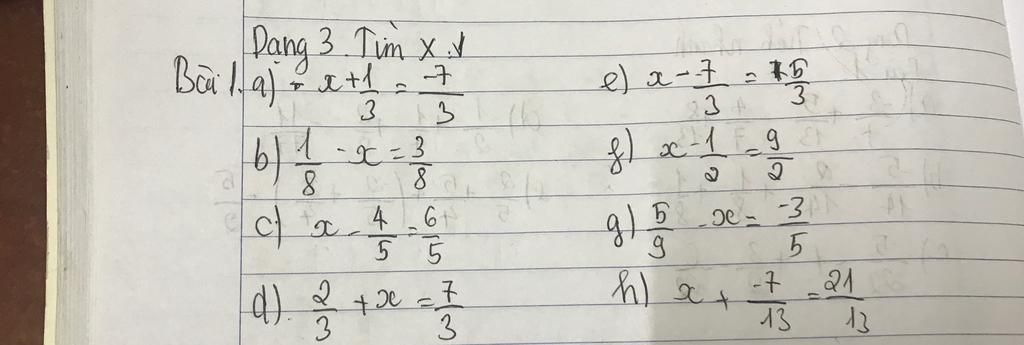 Dạng 3. Tìm x.
Bài 1. a) x + 1/3 = -7/3
e) x - 7/3 = 5/3
b) 1/8 - x = 3/8
f) x - 1/2 = 9/2
c) x - 4/5 = 6/5
g) 5/9 - x = -3/5
d). 2/3 + x = 7/3
h) x + -7/13 = 21/13